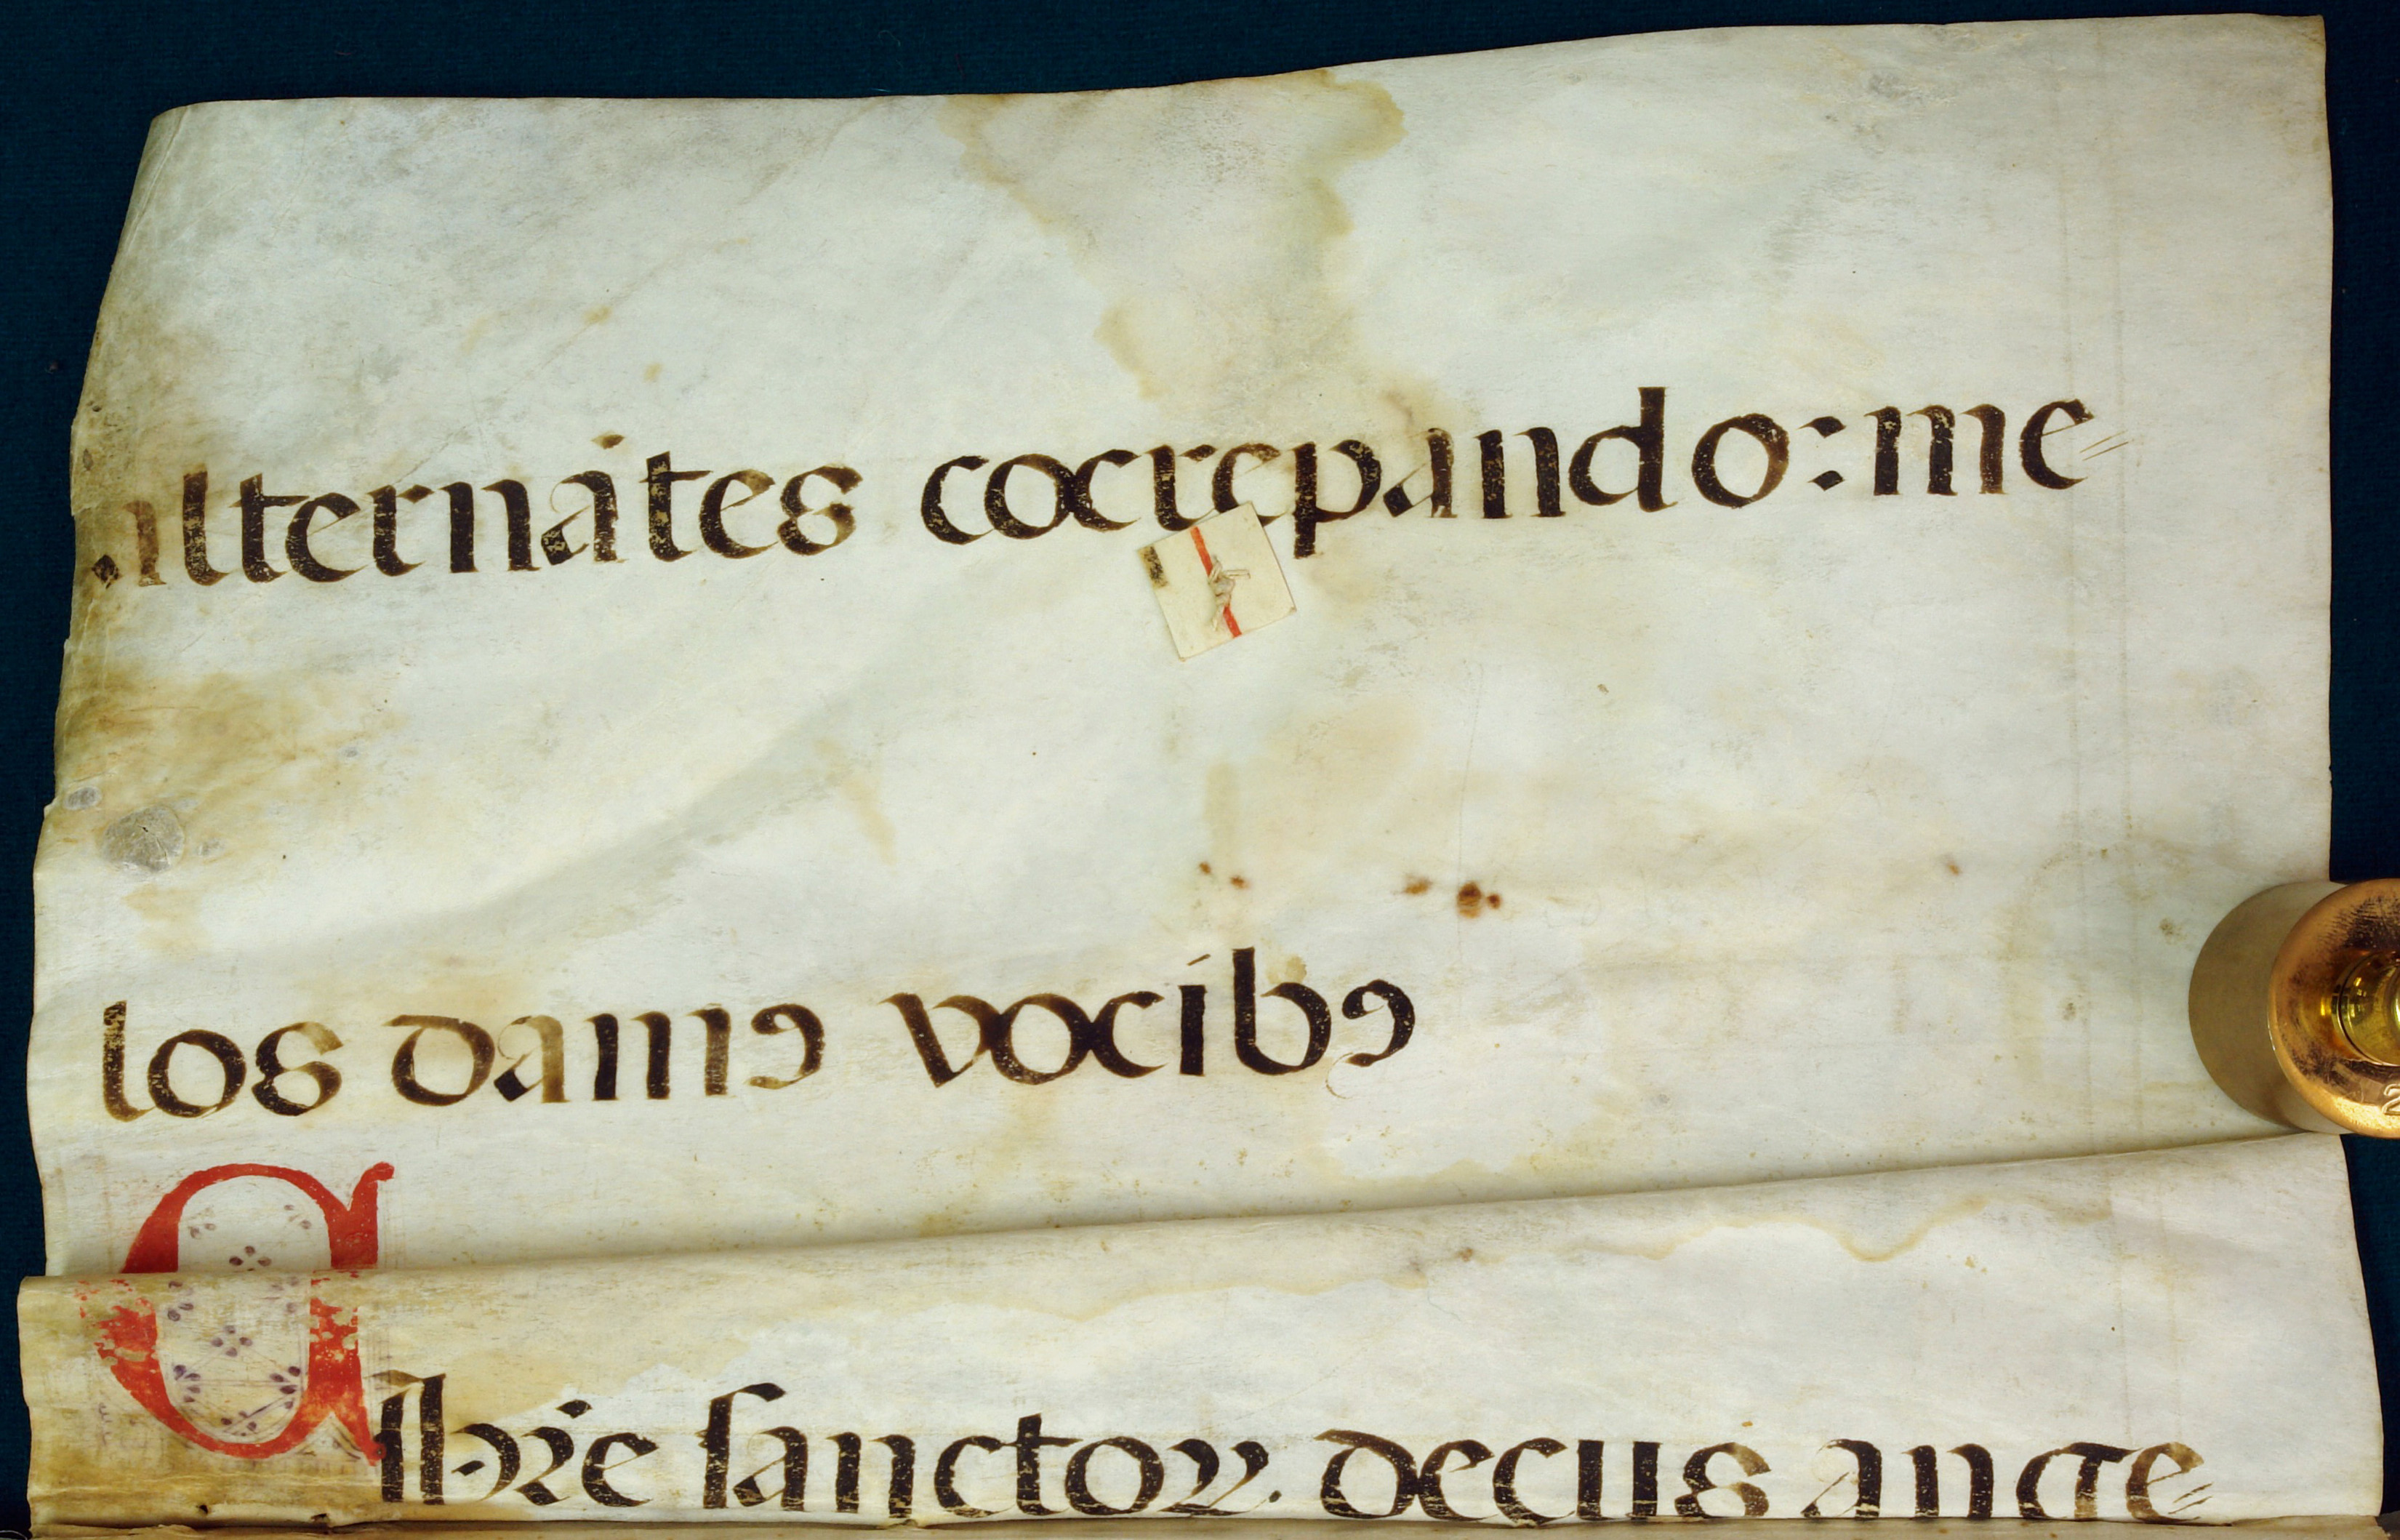 alternātes cocrepando: me=
los damꝯ vocibꝯ
Chr̄e sanctoꝝ. decus ange=